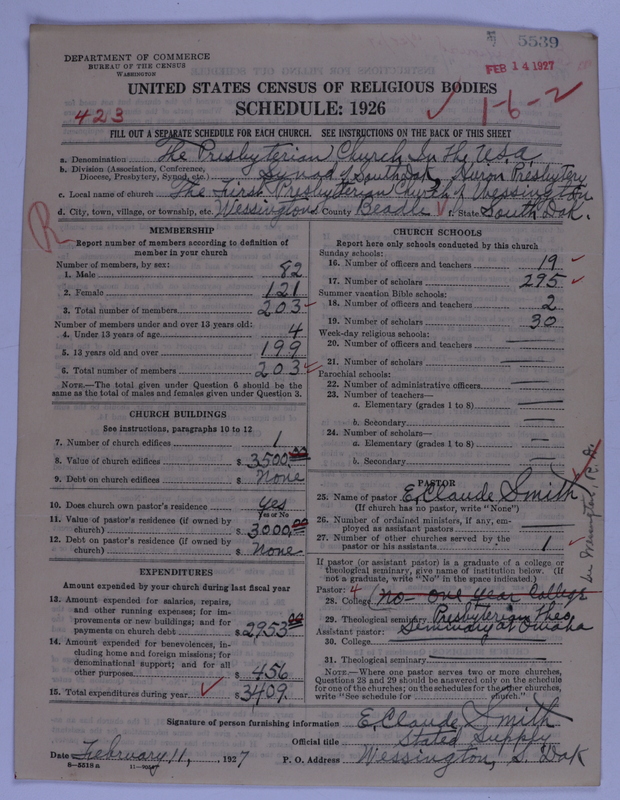 5539
DEPARTMENT OF COMMERCE
BUREAU OF THE CENSUS
WASHINGTON
FEB 14 1927
UNITED STATES CENSUS OF RELIGIOUS BODIES
SCHEDULE: 1926
1-6-2
423
FILL OUT A SEPARATE SCHEDULE FOR EACH CHURCH. SEE INSTRUCTIONS ON THE BACK OF THIS SHEET
a. Denomination The Presbyterian Church In the U.S.A.
b. Division (Association, Conference, Diocese, Presbytery, Synod, etc.) Synod of South Dak, Huron Presbytery
c. Local name of church The First Presbyterian Church of Wessington
d. City, town, village, or township, etc. Wessington County Beadle f. State South Dak.
R
MEMBERSHIP
Report number of members according to definition of
member in your church
Number of members, by sex:
1. Male 82
2. Female 121
3. Total number of members 203
Number of members under and over 13 years old:
4. Under 13 years of age 4
5. 13 years old and over 199
6. Total number of members 203
NOTE.—The total given under Question 6 should be
same as the total of males and females given under Question 3.
CHURCH BUILDINGS
See instructions, paragraphs 10 to 12
7. Number of church edifices 1
8. Value of church edifices $ 3500.00
9. Debt on church edifices $ None
10. Does church own pastor's residence yes
Yes or No
11. Value of pastor's residence (if owned by
church) $ 3000.00
12. Debt on pastor's residence (if owned by
church) $ None
EXPENDITURES
Amount expended by your church during last fiscal year
13. Amount expended for salaries, repairs,
and other running expenses; for im-
provements or new buildings; and for
payments on church debt $ 2953.00
14. Amount expended for benevolences, in-
cluding home and foreign missions; for
denominational support; and for all
other purposes $ 456
15. Total expenditures during year $ 3409.
CHURCH SCHOOLS
Report here only schools conducted by this church
Sunday schools:
16. Number of officers and teachers 19
17. Number of scholars 295
Summer vacation Bible schools:
18. Number of officers and teachers 2
19. Number of scholars 30
Week-day religious schools:
20. Number of officers and teachers
21. Number of scholars
Parochial schools:
22. Number of administrative officers
23. Number of teachers—
a. Elementary (grades 1 to 8)
b. Secondary
24. Number of scholars—
a. Elementary (grades 1 to 8)
b. Secondary
PASTOR
25. Name of pastor E. Claude Smith
(If church has no pastor, write "None")
26. Number of ordained ministers, if any, em-
ployed as assistant pastors
27. Number of other churches served by the
pastor or his assistants 1
If pastor (or assistant pastor) is a graduate of a college or
theological seminary, give name of institution below. (If
not a graduate, write "No" in the space indicated.)
Pastor: 4
28. College (No - one year College
29. Theological seminary Presbyterian Theo.
Seminary at Omaha
Assistant pastor:
30. College
31. Theological seminary
NOTE.—Where one pastor serves two or more churches,
Questions 28 and 29 should be answered only on the schedule
for one of the churches; on the schedules for the other churches,
write "See schedule for church."
Signature of person furnishing information E. Claude Smith
Official title Stated Supply
Date February 11, 1927 P. O. Address Wessington, S. Dak
8-5518 a